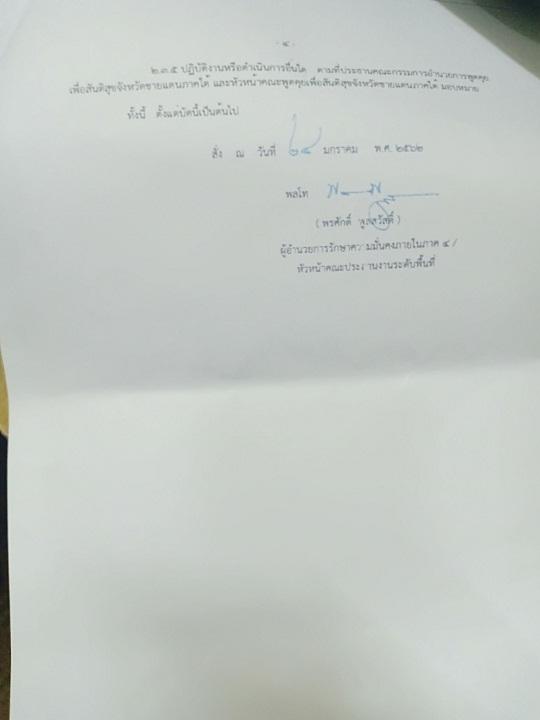 - ๔ -
๒.๓.๕ ปฏิบัติงานหรือดำเนินการอื่นใด ตามที่ประธานคณะกรรมการอำนวยการพูดคุย
เพื่อสันติสุขจังหวัดชายแดนภาคใต้ และหัวหน้าคณะพูดคุยเพื่อสันติสุขจังหวัดชายแดนภาคใต้ มอบหมาย
ทั้งนี้ ตั้งแต่บัดนี้เป็นต้นไป
สั่ง ณ วันที่ ๒๔ มกราคม พ.ศ. ๒๕๖๒
พลโท
( พรศักดิ์ พูลสวัสดิ์ )
ผู้อำนวยการรักษาความมั่นคงภายในภาค ๔ /
หัวหน้าคณะประสานงานระดับพื้นที่